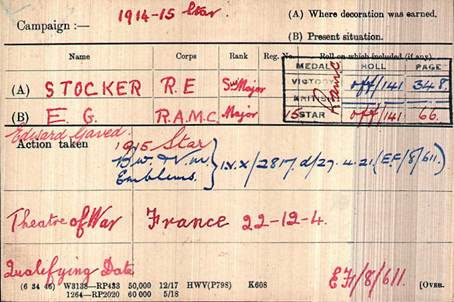 Campaign :— 1914-15 Star
(A) Where decoration was earned.
(B) Present situation.
Name Corps Rank Reg. No. Roll on which included (if any)
MEDAL ROLL PAGE
(A) STOCKER R.E S Major VICTORY off/141 348.
BRITISH
(B) E. G. R.A.M.C. Major 15 STAR off/141 66.
Edward Gaved.
Action taken 1915 Star
B.W. & V.m
Emblems. } IV.X/2817. d/29.4.21 (EF/8/611.)
Theatre of War France 22-12-4.
Qualifying Date EF/8/611.
(6 34 46) W3138—RP433 50,000 12/17 HWV(P798) K608 (Over.
1264—RP2020 60 000 5/18